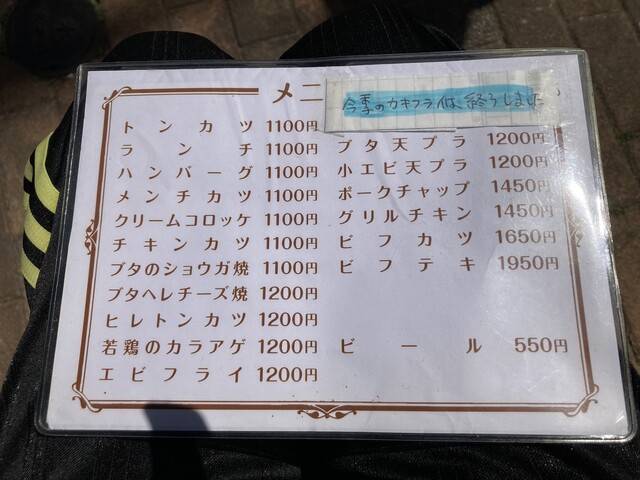 メニ
今季のカキフライは、終了しました
トンカツ 1100円
ランチ 1100円
ハンバーグ 1100円
メンチカツ 1100円
クリームコロッケ 1100円
チキンカツ 1100円
ブタのショウガ焼 1100円
ブタヘレチーズ焼 1200円
ヒレトンカツ 1200円
若鶏のカラアゲ 1200円
エビフライ 1200円
ブタ天プラ 1200円
小エビ天プラ 1200円
ポークチャップ 1450円
グリルチキン 1450円
ビフカツ 1650円
ビフテキ 1950円
ビール 550円